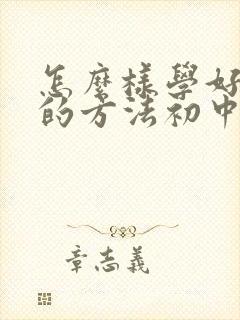 怎麼樣學好
的方法初中
章志義